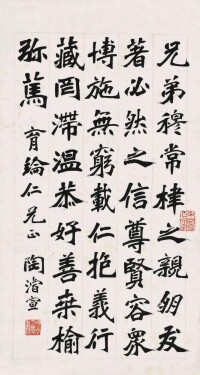 兄弟穆常棣之親朋友
著必然之信尊賢容眾
博施無窮載仁抱義行
藏罔滯溫恭好善桑榆
弥篤 育綸仁兄正 陶濬宣